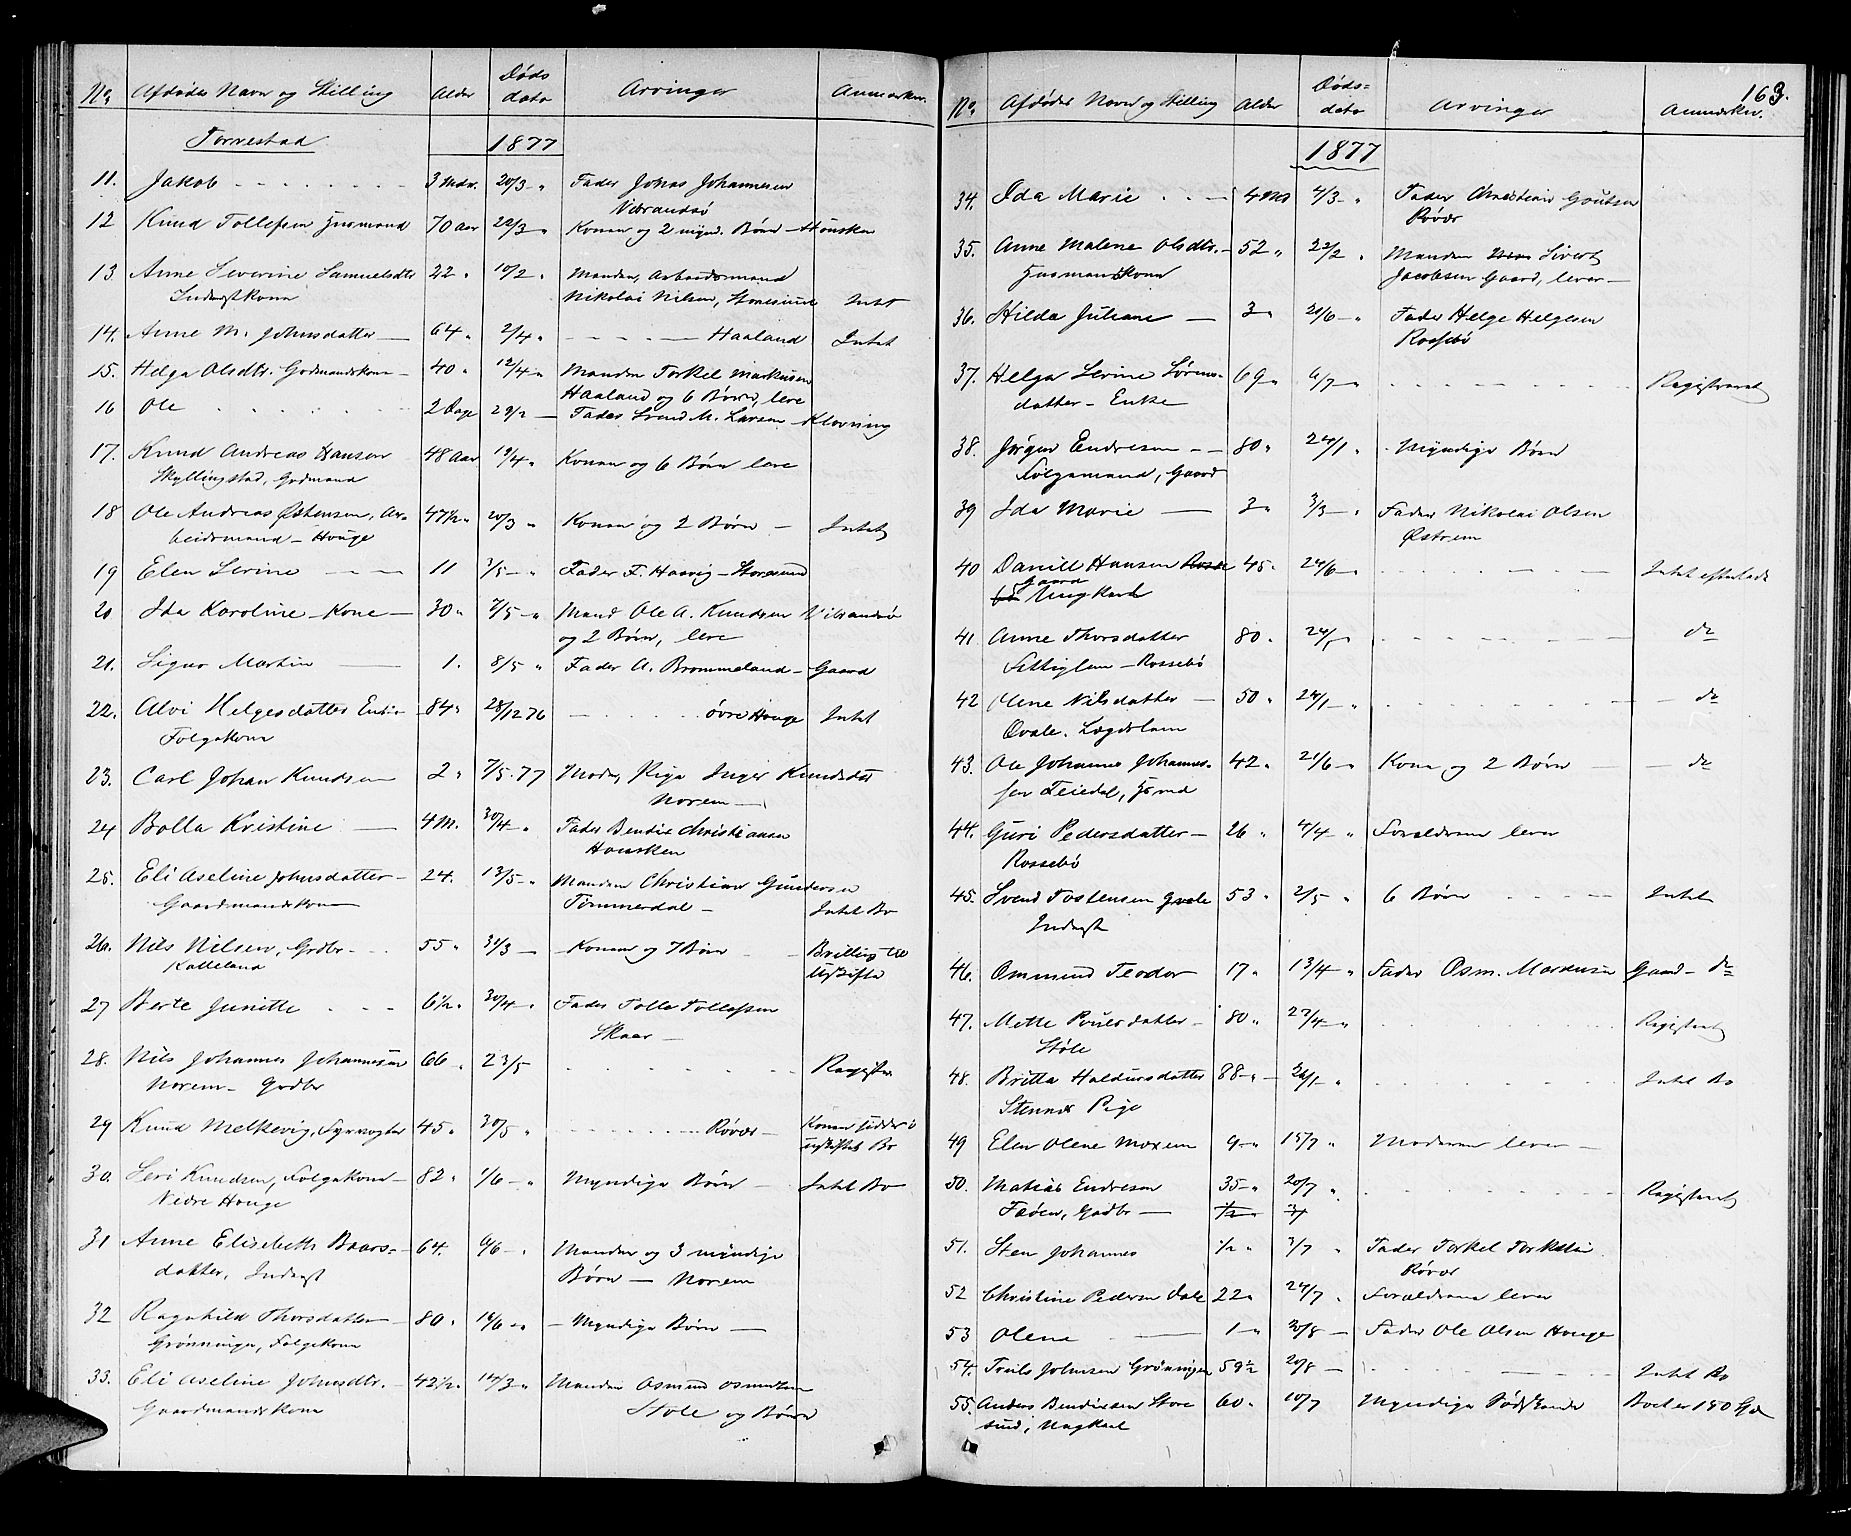 No. Afdødes Navn og Stilling Alder Døds dato Arvinger Anmærkn.
Torvestad 1877
11. Jakob 3 Mdr. 20/3 " Fader Jonas Johannesen
12 Knud Tollefsen Husmand 70 Aar 22/3 " Konen og 2 mynd. Børn Housken
13 Anne Severine Samuelsdtr 22 " 10/2 " Manden, Arbeidsmand
Inderstkone Nikolai Nilsen, Storesund Intet
14. Anne M. Johnsdatter 64 " 2/4 " Haaland Intet
15. Helga Olsdtr. Gaardmandskone 40 " 12/4 " Manden Torkel Markusen
Haaland og 6 Børn, leve
16 Ole 2 Dage 29/2 Fader Svend M. Larsen Klovning
17. Knud Andreas Hansen 48 Aar 19/4 " Konen og 6 Børn leve
Skyllingstad, Gadmand
18 Ole Andreas Østensen, Ar- 47 1/2 " 20/3 " Konen og 2 Børn Intet
beidsmand - Houge
19 Elen Serine 11 3/5 " Fader F. Haavig - Storesund
20 Ida Karoline Kone 30 " 7/5 " Mand Ole A. Knudsen Vibrandsø
og 2 Børn, leve
21. Sigur Martin 1. 8/5 " Fader A. Brommeland - Gaard
22. Alvi Helgesdatter Enke 84 " 28/12 76 øvre Houge Intet
Folgekone
23. Carl Johan Knudsen 2 " 7/5.77 Moder Pige Inger Knudsdat
Norem
24 Bolla Kristine 4 M. 30/4 " Fader Bendix Christiansen
Housken
25. Eli Aseline Johnsdatter 24. 13/5 " Manden Christian Gundersen
Gaardmandskone Tømmerdal Intet Bo
26. Nils Nilsen, Grdbr 55 " 31/3 Konen og 7 Børn Bevilling til
Kalleland Uskifte
27 Berte Junitte 6 1/2 " 30/4 " Fader Tolle Tollefsen
Skaar
28. Nils Johannes Johannesen 66 " 23/5 Registr.
Norem - Grdbr
29 Knud Melkevig, Fyrvogter 45 " 30/5 " Røvær Konen sidder i
uskiftet Bo
30. Seri Knudsen, Folgekone 82 " 1/6 " Myndige Børn Intet Bo
Nedre Houge
31 Anne Elisabeth Baars- 64. 6/6 " Manden og 3 myndige
datter, Inderst Børn - Norem
32 Ragnhild Thorsdatter 80 " 16/6 " Myndige Børn
Grønningen, Folgekone
33. Eli Aseline Johnsdtr. 42 1/2 " 14/3 " Manden Osmund Osmundsen
Gaardmandskone Støle og Børn
163.
No. Afdødes Navn og Stilling Alder Døds- dato Arvinger Anmærkn.
1877
34. Ida Marie 4 Md 4/3 " Fader Christian Goutsen
Røvær
35. Anne Malene Olsdtr. 52 " 22/2 " Manden Sivert
Husmandskone Jacobsen Gaard, lever
36. Hilda Juliane 3 " 20/6 " Fader Helge Helgesen
Rossebø
37. Helga Serine Sørens- 69 " 6/7 " Registreret
datter - Enke
38. Jørgen Endresen 80 " 24/1 " Myndige Børn
Følgemand, Gaard
39 Ida Marie 3 " 3/3 " Fader Nikolai Olsen
Østrem
40 Daniel Hansen Rosse 45 " 24/6 " Intet efterladt
bø Gaard Ungkarl
41 Anne Thorsdatter 80 " Do
Fattiglem - Rossebø
42 Olene Nilsdatter 50 " 24/1 " Do
Qvale. Lægdslem
43. Ole Johannes Johannes- 42 " 21/6 " Kone og 2 Børn Do
sen Feiedal, Hsmd
44. Guri Pedersdatter 26 " 4/4 " Forældrene lever
Rossebø
45. Svend Tostensen Qvale 53 " 2/5 " 6 Børn Intet
Inderst
46. Ommund Teodor 17 " 13/4 " Fader Osm. Mardusen Gaard - Do
47. Mette Povlsdatter 80 " 27/4 " Registreret
Støle
48. Britta Haldursdatter 88 " 24/1 " Intet Bo
Stennes Pige
49 Elen Olene Moxem 9 " 15/7 " Moderen lever
50. Matias Endresen 35 " 20/7 " Registreret
Feøen, Gadbr
51. Sten Johannes 1/2 " 3/7 " Fader Torkel Torkelsen
Røvær
52 Christine Pedersen Dale 22 " 24/7 " Forældrene lever
53 Olena 1 " 30/8 Fader Ole Olsen Houge
54. Troels Johnsen Grønningen 59 1/2 20/8 Intet Bo
55. Anders Bendixsen Store 60 " 10/7 Myndige Sødskende Boet er 150 Spd
sund, Ungkarl